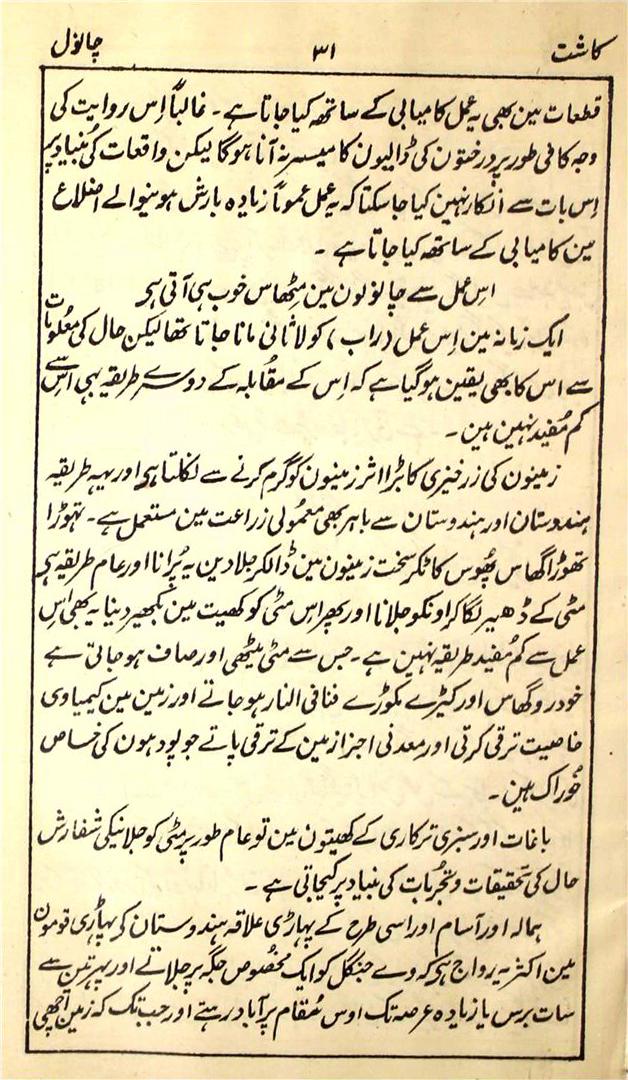 کاشت ۳۱ چانول
قطعات مین بھی یہ عمل کامیابی کے ساتھ کیا جاتا ہے۔ غالباً اِس روایت کی
وجہ کافی طور پر درختون کی ڈالیون کا میسر نہ آنا ہوگا لیکن واقعات کی بُنیاد پر
اِس بات سے اُنکار نہین کیا جاسکتا کہ یہ عمل عموماً زیادہ بارش ہونیوالے اضلاع
مین کامیابی کے ساتھ کیا جاتا ہے ۔
اس عمل سے چانولون مین مِٹھاس خوب ہی آتی ہی
ایک زمانہ مین اِس عمل (راب) کو لاثانی مانا جاتا تھا لیکن حال کی معلومات
سے اس کا بھی یقین ہوگیا ہے کہ اِس کے مقُابلہ کے دوسرے طریقہ بہی اس سے
کم مُفید نہین ہین ۔
زمینون کی زرخیزی کا بڑا اثر زمینون کو گرم کرنے سے نکلتا ہی اور یہہ طریقہ
ہندوستان اور ہندوستان سے باہر بھی معمُولی زراعت مین مستعمل ہے۔ تہوڑا
تھوڑا گھاس پھُوس کاٹکر سخت زمینون مین ڈالکر جلادین یہ پُرانا اور عام طریقہ ہی
مٹی کے ڈھیر لگا کر اونکو جلانا اور پھر اس مٹی کو کھیت مین بکھیر دینا یہ بھی اس
عمل سے کم مُفید طریقہ نہین ہے۔ جس سے مٹی میٹھی اور صاف ہو جاتی ہے
خودرو گھاس اور کیڑے مکوڑے فنا فی النار ہو جاتے اور زمین مین کیمیاوی
خاصیت ترقی کرتی اور معدنی اجزا زمین کے ترقی پاتے جو پودہون کی خاص
خُوراک ہین ۔
باغات اور سبزی ترکاری کے کھیتون مین تو عام طور پر مٹی کو جلانیکی شفارش
حال کی تحقیقات و تجربات کی بنیاد پر کیجاتی ہے ۔
ہمالہ اور آسام اور اسی طرح کے پہاڑی علاقہ ہندوستان کی پہاڑی قومون
مین اکثر یہ رواج ہی کہ وے جنگل کو ایک مخصُوص جگہ پر جلاتے اور پہر تین سے
سات برس یا زیادہ عرصہ تک اوس مُقام پر آباد رہتے اور جب تک کہ زمین اچھی